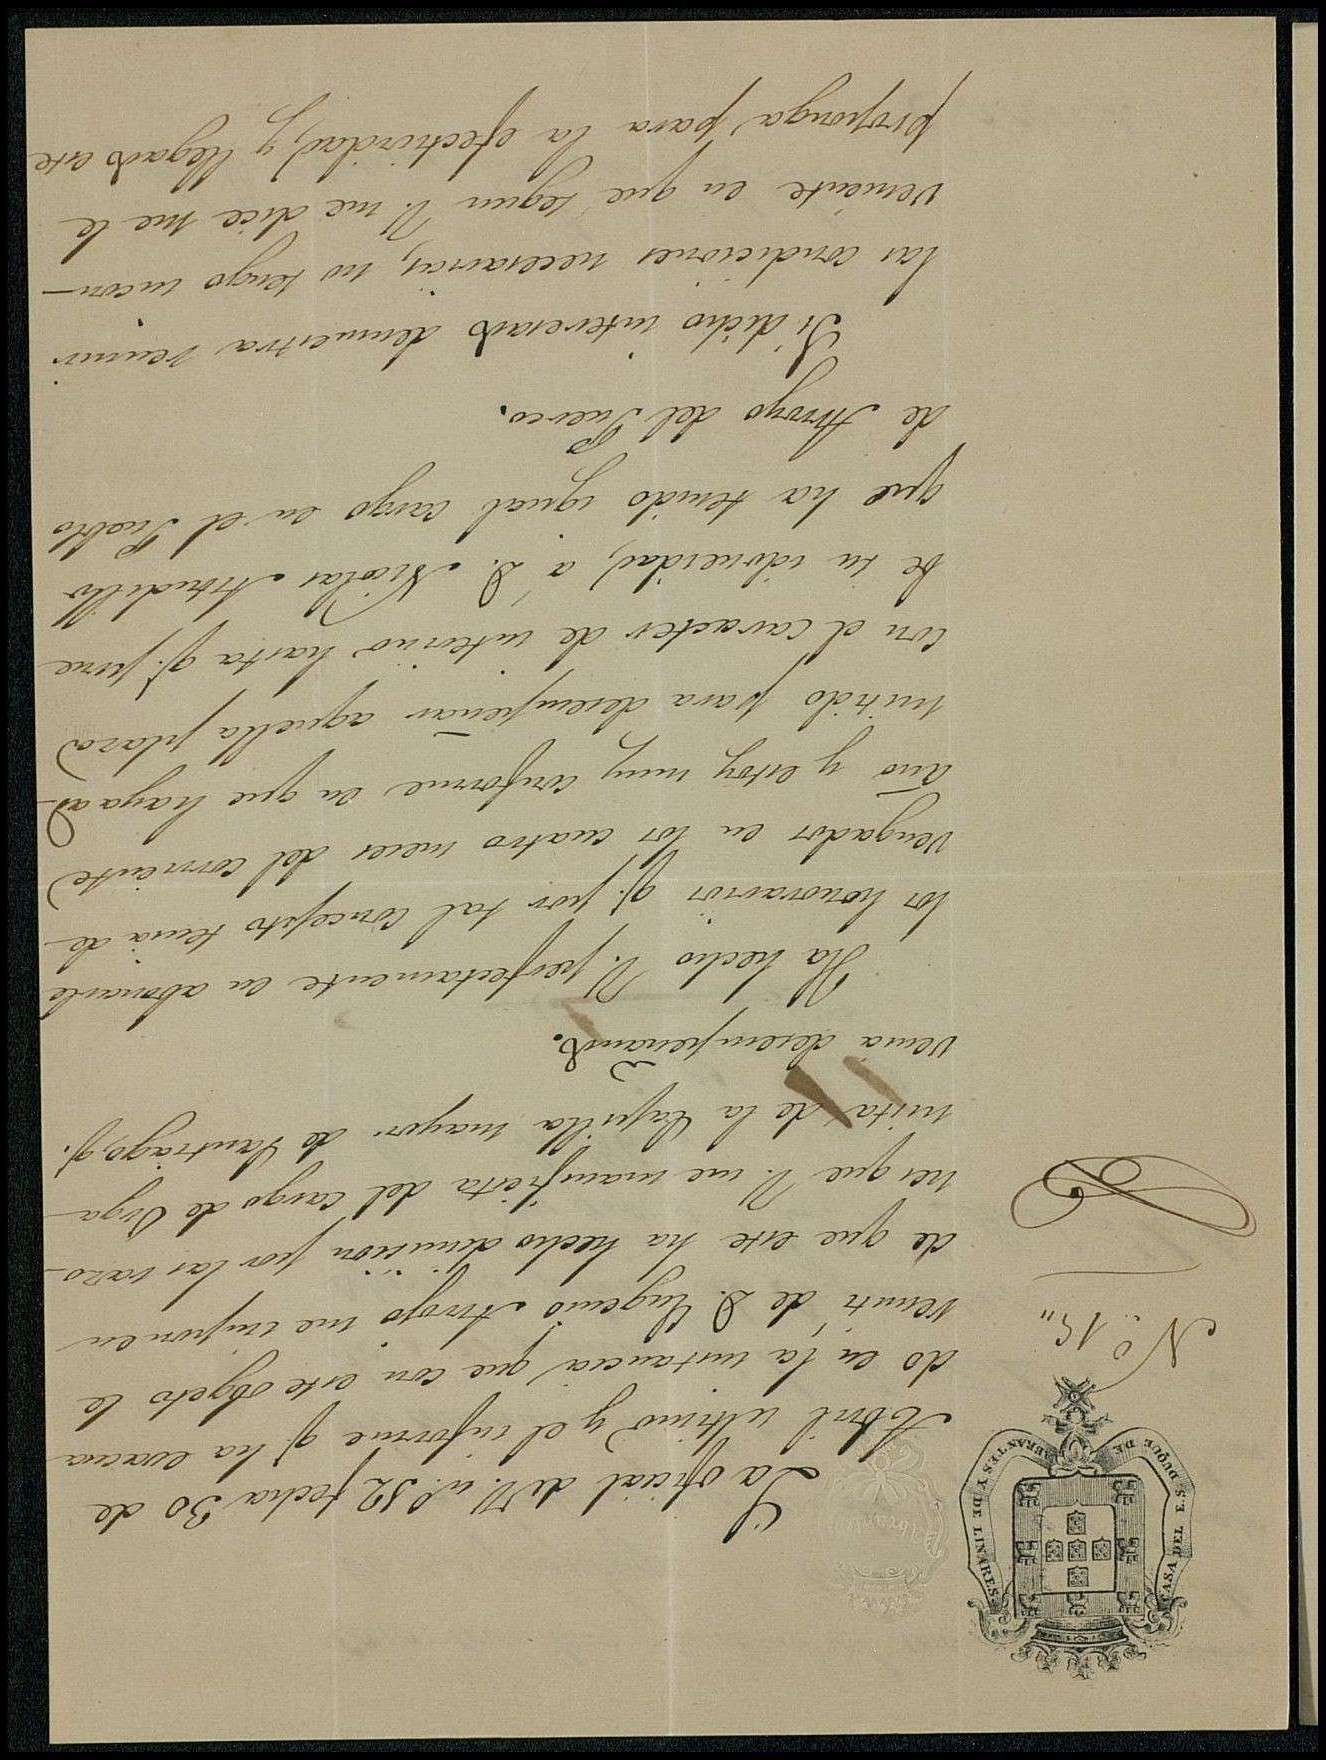 CASA DEL E.S. DUQUE DE ABRANTES Y DE LINARES
N.º 15"
La oficial de V. nº. 52 fecha 30 de
Abril ultimo y el informe q. ha evacua-
do en la instancia que con este objeto le
remití de D. Eugenio Arroyo me imponen
de que este ha hecho dimisión por las razo-
nes que V. me manifiesta del cargo de Orga-
nista de la Capilla mayor de Santiago, q.
venia desempeñando.
Ha hecho V. perfectamente en abonarle
los honorarios q. por tal concepto tenia de-
vengados en los cuatro meses del corriente
año y estoy muy conforme en que haya ad-
mitido para desempeñar aquella plaza
con el caracter de interino hasta q. prue
be su idoneidad, á D. Nicolas Astudillo
que ha tenido igual cargo en el Pueblo
de Arroyo del Puerco.
Si dicho interesado demuestra reunir
las condiciones necesarias, no tengo incon-
veniente en que segun V. me dice me le
proponga para la efectividad, y llegado este